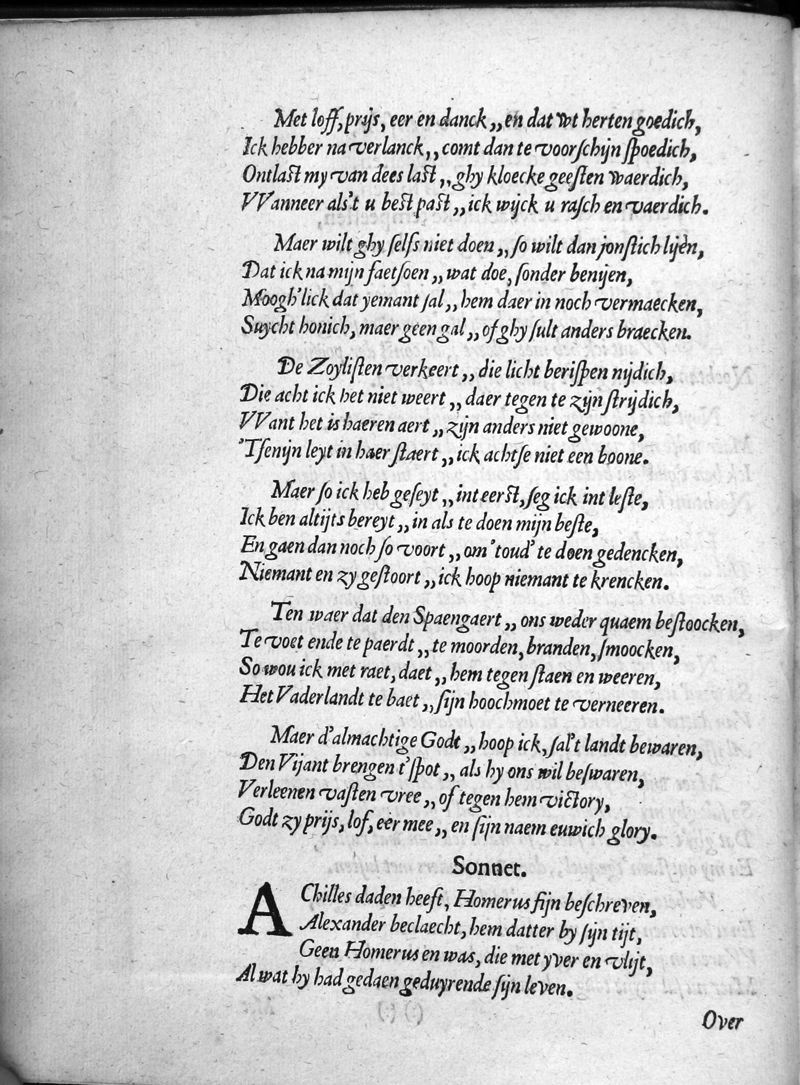 Met loff, prijs, eer en danck ,, en dat wt herten goedich,
Ick hebber na verlanck ,, comt dan te voorschijn spoedich,
Ontlast my van dees last ,, ghy kloecke geesten waerdich,
VVanneer als't u best past ,, ick wijck u rasch en vaerdich.
Maer wilt ghy selfs niet doen ,, so wilt dan jonstich lijen,
Dat ick na mijn faetsoen ,, wat doe, sonder benijen,
Moogh'lick dat yemant sal ,, hem daer in noch vermaecken,
Suycht honich, maer geen gal ,, of ghy sult anders braecken.
De Zoylisten verkeert ,, die licht berispen nijdich,
Die acht ick het niet weert ,, daer tegen te zijn strijdich,
VVant het is haeren aert ,, zijn anders niet gewoone,
'Tsenijn leyt in haer staert ,, ick achtse niet een boone.
Maer so ick heb geseyt ,, int eerst, seg ick int leste,
Ick ben altijts bereyt ,, in als te doen mijn beste,
En gaen dan noch so voort ,, om 'toud' te doen gedencken,
Niemant en zy gestoort ,, ick hoop niemant te krencken.
Ten waer dat den Spaengaert ,, ons weder quaem bestoocken,
Te voet ende te paerdt ,, te moorden, branden, smoocken,
So wou ick met raet, daet ,, hem tegen staen en weeren,
Het Vaderlandt te baet ,, sijn hoochmoet te verneeren.
Maer d'almachtige Godt ,, hoop ick, sal't landt bewaren,
Den Vijant brengen t'spot ,, als hy ons wil beswaren,
Verleenen vasten vree ,, of tegen hem victory,
Godt zy prijs, lof, eer mee ,, en sijn naem euwich glory.
Sonnet.
AChilles daden heeft, Homerus sijn beschreven,
Alexander beclaecht, hem datter by sijn tijt,
Geen Homerus en was, die met yver en vlijt,
Al wat hy had gedaen geduyrende sijn leven.
Over